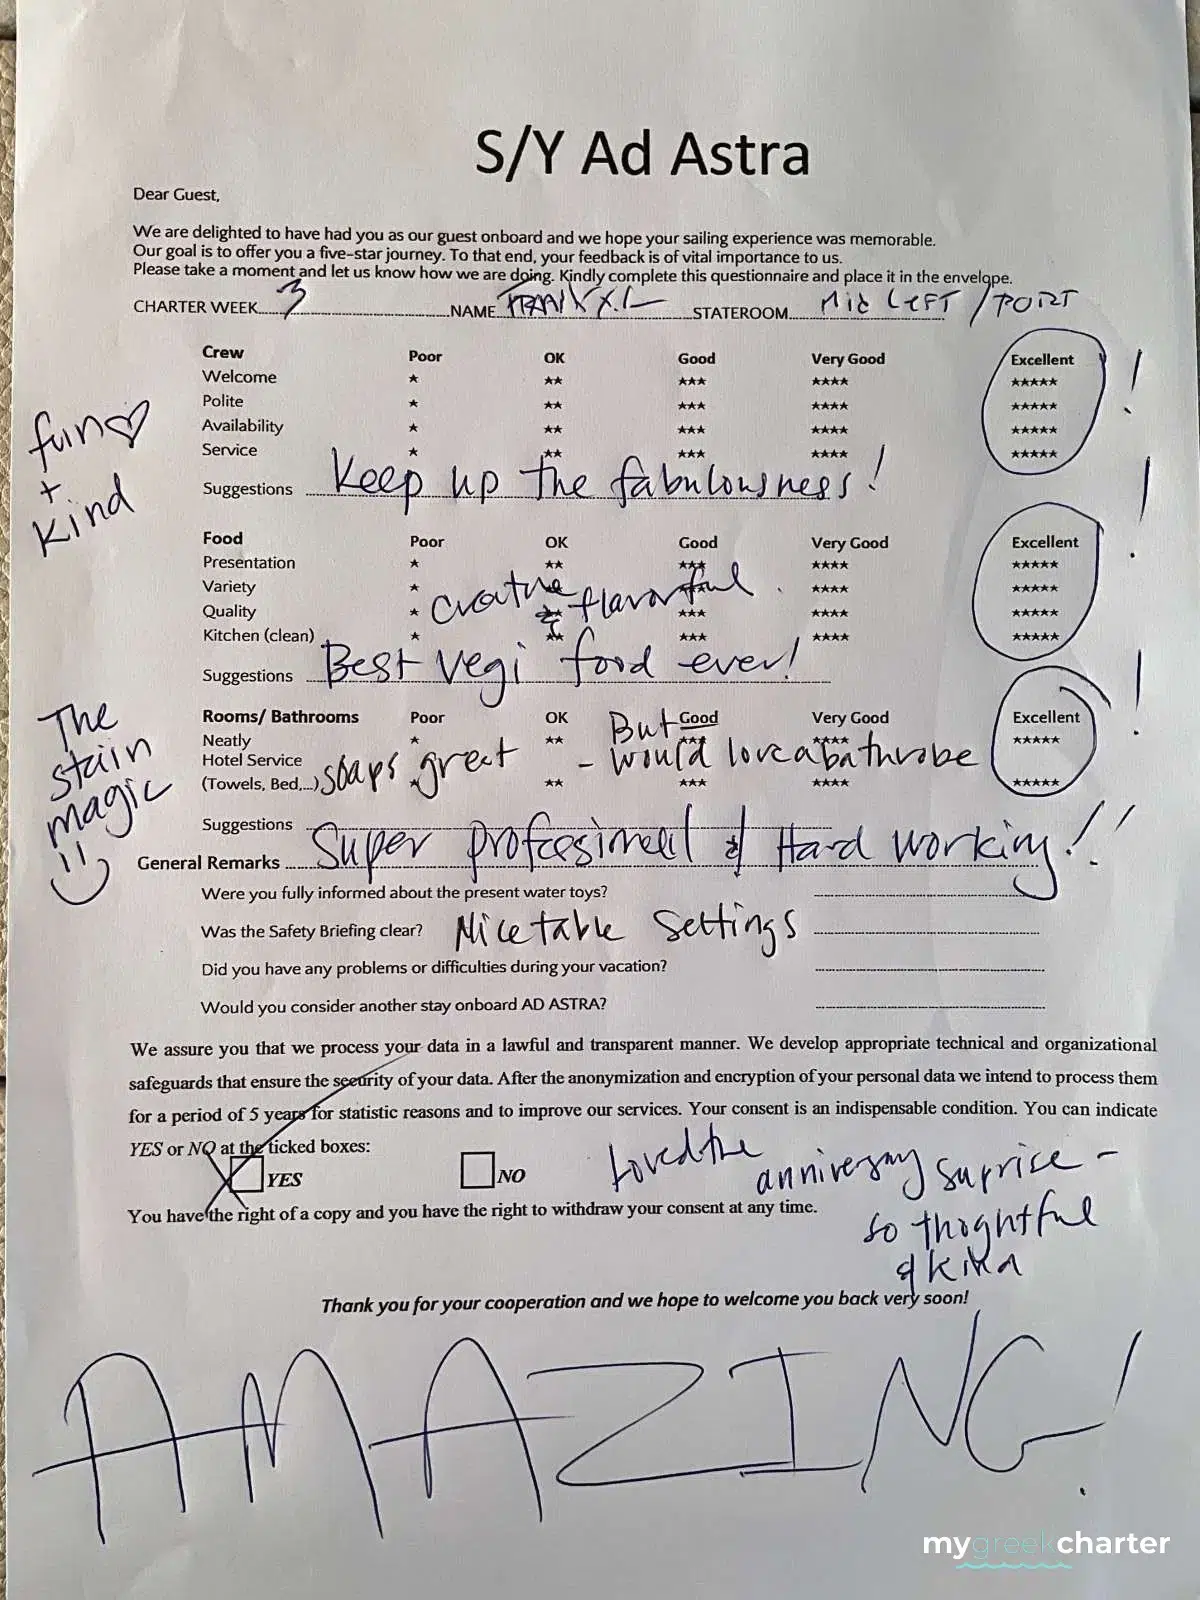 S/Y Ad Astra
Dear Guest,
We are delighted to have had you as our guest onboard and we hope your sailing experience was memorable.
Our goal is to offer you a five-star journey. To that end, your feedback is of vital importance to us.
Please take a moment and let us know how we are doing. Kindly complete this questionnaire and place it in the envelope.
CHARTER WEEK 3 NAME STATEROOM Mid LEFT / PORT
Crew Poor OK Good Very Good Excellent
Welcome ★ ★★ ★★★ ★★★★ ★★★★★ !
Polite ★ ★★ ★★★ ★★★★ ★★★★★
Availability ★ ★★ ★★★ ★★★★ ★★★★★
Service ★ ★★ ★★★ ★★★★ ★★★★★
fun ♡
+
Kind
Suggestions Keep up the fabulousness!
Food Poor OK Good Very Good Excellent !
Presentation ★ ★★ ★★★ ★★★★ ★★★★★
Variety ★ ★★ ★★★ ★★★★ ★★★★★
creative & flavorful
Quality ★ ★★ ★★★ ★★★★ ★★★★★
Kitchen (clean) ★ ★★ ★★★ ★★★★ ★★★★★
Suggestions Best vegi food ever!
Rooms/ Bathrooms Poor OK Good Very Good Excellent !
Neatly ★ ★★ ★★★ ★★★★ ★★★★★
Hotel Service
(Towels, Bed,...) ★ ★★ ★★★ ★★★★ ★★★★★
soaps great - But would love a bathrobe
The
stain
magic
Suggestions
General Remarks Super profesional & Hard working!!
Were you fully informed about the present water toys?
Was the Safety Briefing clear? Nice table settings
Did you have any problems or difficulties during your vacation?
Would you consider another stay onboard AD ASTRA?
We assure you that we process your data in a lawful and transparent manner. We develop appropriate technical and organizational
safeguards that ensure the security of your data. After the anonymization and encryption of your personal data we intend to process them
for a period of 5 years for statistic reasons and to improve our services. Your consent is an indispensable condition. You can indicate
YES or NO at the ticked boxes:
YES NO
Loved the anniversary suprise -
so thoghtful
& kind
You have the right of a copy and you have the right to withdraw your consent at any time.
Thank you for your cooperation and we hope to welcome you back very soon!
AMAZING!
mygreekcharter